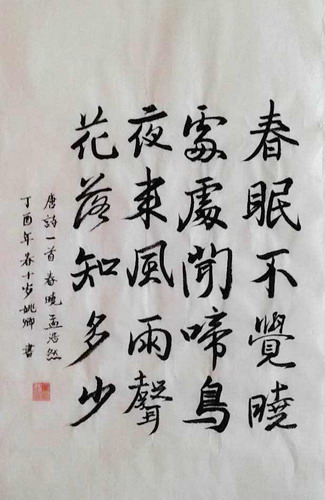 春眠不覺曉
處處聞啼鳥
夜來風雨聲
花落知多少
唐詩一首春曉孟浩然
丁酉年春十岁姚卿書